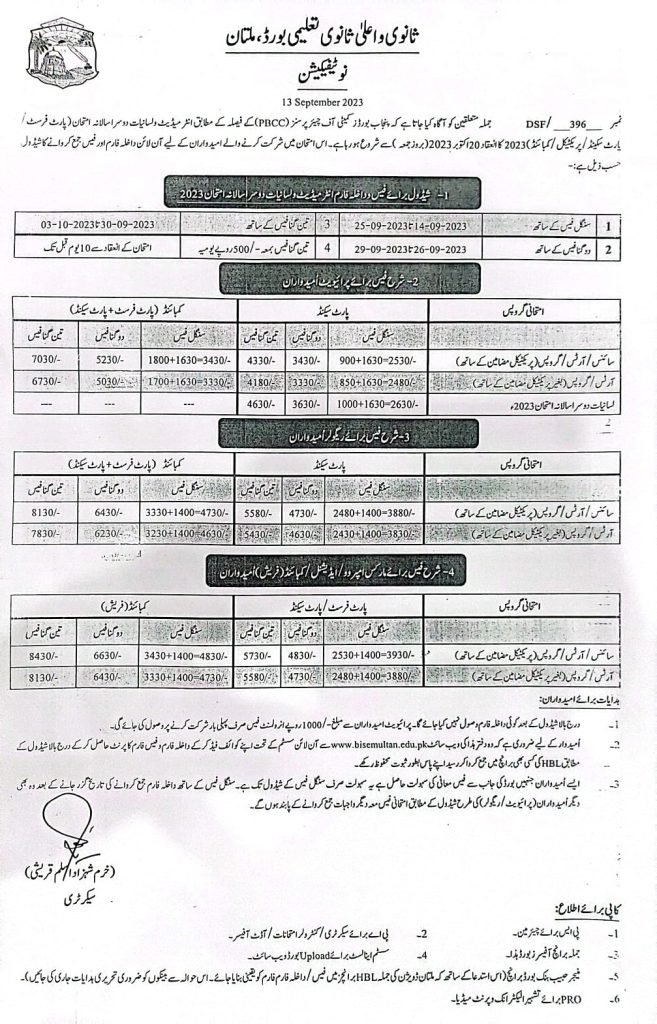 ثانوی و اعلیٰ ثانوی تعلیمی بورڈ، ملتان
نوٹیفکیشن
13 September 2023
نمبر DSF/__396__ جملہ متعلقین کو آگاہ کیا جاتا ہے کہ پنجاب بورڈز کمیٹی آف چیئرپرسنز (PBCC) کے فیصلہ کے مطابق انٹرمیڈیٹ ولسانیات دوسرا سالانہ امتحان (پارٹ فرسٹ/
پارٹ سیکنڈ/پریکٹیکل/کمبائنڈ) 2023 کا انعقاد 20 اکتوبر 2023 (بروز جمعہ) سے شروع ہو رہا ہے۔ اس امتحان میں شرکت کرنے والے امیدواران کے لیے آن لائن داخلہ فارم اور فیس جمع کروانے کا شیڈول
حسب ذیل ہے:۔
1- شیڈول برائے فیس و داخلہ فارم انٹرمیڈیٹ ولسانیات دوسرا سالانہ امتحان 2023
1 سنگل فیس کے ساتھ 14-09-2023 تا 25-09-2023 3 تین گنا فیس کے ساتھ 30-09-2023 تا 03-10-2023
2 دوگنا فیس کے ساتھ 26-09-2023 تا 29-09-2023 4 تین گنا فیس بمعہ -/500 روپے یومیہ امتحان کے انعقاد سے 10 یوم قبل تک
2- شرح فیس برائے پرائیویٹ اُمیدواران
امتحانی گروپس پارٹ سیکنڈ کمبائنڈ (پارٹ فرسٹ+پارٹ سیکنڈ)
سنگل فیس دوگنا فیس تین گنا فیس سنگل فیس دوگنا فیس تین گنا فیس
سائنس/آرٹس/گروپس (پریکٹیکل مضامین کے ساتھ) 900+1630=2530/- 3430/- 4330/- 1800+1630=3430/- 5230/- 7030/-
آرٹس/گروپس (بغیر پریکٹیکل مضامین کے ساتھ) 850+1630=2480/- 3330/- 4180/- 1700+1630=3330/- 5030/- 6730/-
لسانیات دوسرا سالانہ امتحان 2023ء 1000+1630=2630/- 3630/- 4630/- --- --- ---
3- شرح فیس برائے ریگولر اُمیدواران
امتحانی گروپس پارٹ سیکنڈ کمبائنڈ (پارٹ فرسٹ+پارٹ سیکنڈ)
سنگل فیس دوگنا فیس تین گنا فیس سنگل فیس دوگنا فیس تین گنا فیس
سائنس/آرٹس/گروپس (پریکٹیکل مضامین کے ساتھ) 2480+1400=3880/- 4730/- 5580/- 3330+1400=4730/- 6430/- 8130/-
آرٹس/گروپس (بغیر پریکٹیکل مضامین کے ساتھ) 2430+1400=3830/- 4630/- 5430/- 3230+1400=4630/- 6230/- 7830/-
4- شرح فیس برائے مارکس امپروو/ایڈیشنل/کمبائنڈ (فریش) اُمیدواران
امتحانی گروپس پارٹ فرسٹ/پارٹ سیکنڈ کمبائنڈ (فریش)
سنگل فیس دوگنا فیس تین گنا فیس سنگل فیس دوگنا فیس تین گنا فیس
سائنس/آرٹس/گروپس (پریکٹیکل مضامین کے ساتھ) 2530+1400=3930/- 4830/- 5730/- 3430+1400=4830/- 6630/- 8430/-
آرٹس/گروپس (بغیر پریکٹیکل مضامین کے ساتھ) 2480+1400=3880/- 4730/- 5580/- 3330+1400=4730/- 6430/- 8130/-
ہدایات برائے امیدواران:
1- درج بالا شیڈول کے بعد کوئی داخلہ فارم وصول نہیں کیا جائے گا۔ پرائیویٹ امیدواران سے مبلغ -/1000 روپے انرولمنٹ فیس صرف پہلی بار شرکت کرنے پر وصول کی جائے گی۔
2- اُمیدوار کے لیے ضروری ہے کہ وہ دفتر ہذا کی ویب سائٹ www.bisemultan.edu.pk سے آن لائن سسٹم کے تحت اپنے کوائف فیڈ کر کے داخلہ فارم و فیس فارم کا پرنٹ حاصل کر کے درج بالا شیڈول کے
مطابق HBL کی کسی بھی برانچ میں جمع کروا کر رسید اپنے پاس بطور ثبوت محفوظ رکھے۔
3- ایسے اُمیدواران جنہیں بورڈ کی جانب سے فیس معافی کی سہولت حاصل ہے یہ سہولت صرف سنگل فیس کے شیڈول تک ہے۔ سنگل فیس کے ساتھ داخلہ فارم جمع کروانے کی تاریخ گزر جانے کے بعد وہ بھی
دیگر اُمیدواران (پرائیویٹ/ریگولر) کی طرح شیڈول کے مطابق امتحانی فیس معہ دیگر واجبات جمع کروانے کے پابند ہوں گے۔
(خرم شہزاد اسلم قریشی)
سیکرٹری
کاپی برائے اطلاع:
1- پی ایس برائے چیئرمین۔ 2- پی اے برائے سیکرٹری/کنٹرولر امتحانات/آڈٹ آفیسر۔
3- جملہ برانچ آفیسرز بورڈ ہذا۔ 4- سسٹم اینالسٹ برائے Upload بورڈ ویب سائٹ۔
5- منیجر حبیب بنک بورڈ برانچ (اس استدعا کے ساتھ کہ ملتان ڈویژن کی جملہ HBL برانچز میں فیس/داخلہ فارم کو یقینی بنایا جائے۔ اس حوالہ سے بینکوں کو ضروری تحریری ہدایات جاری کی جائیں)۔
6- PRO برائے تشہیر الیکٹرانک و پرنٹ میڈیا۔